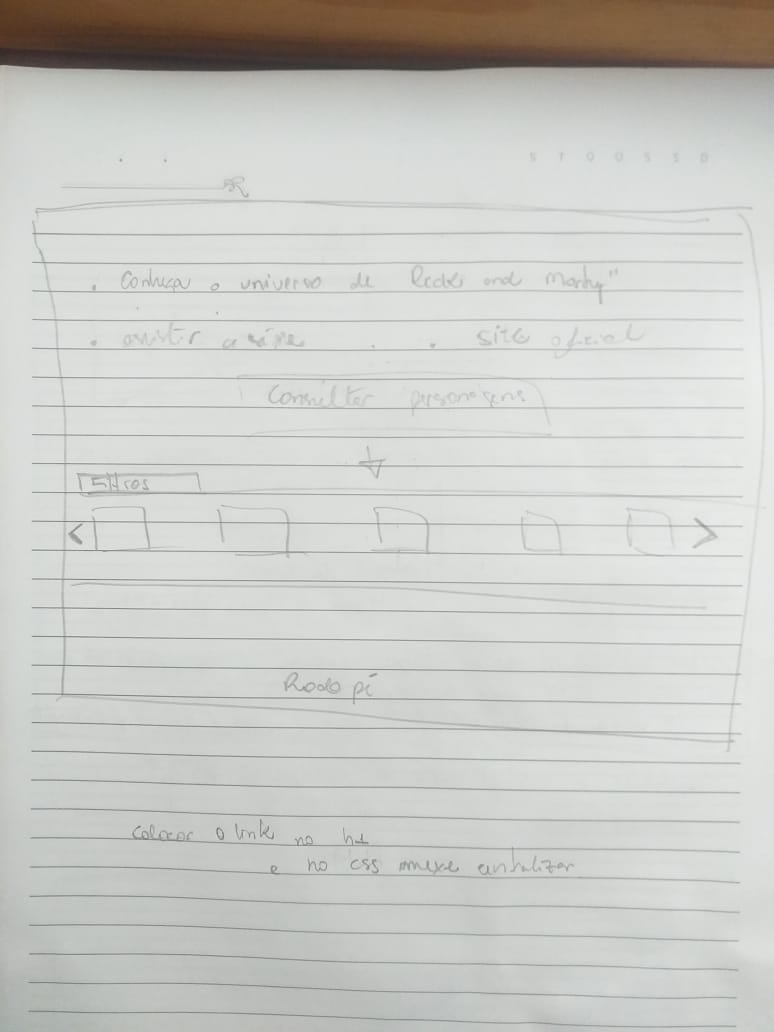 S T Q Q S S D
. Conheça o universo de Rick and Morty"
. assistir a série . . site oficial
Consultar personagens
Filtros
< >
Roda pé
colocar o link no h1
e no css